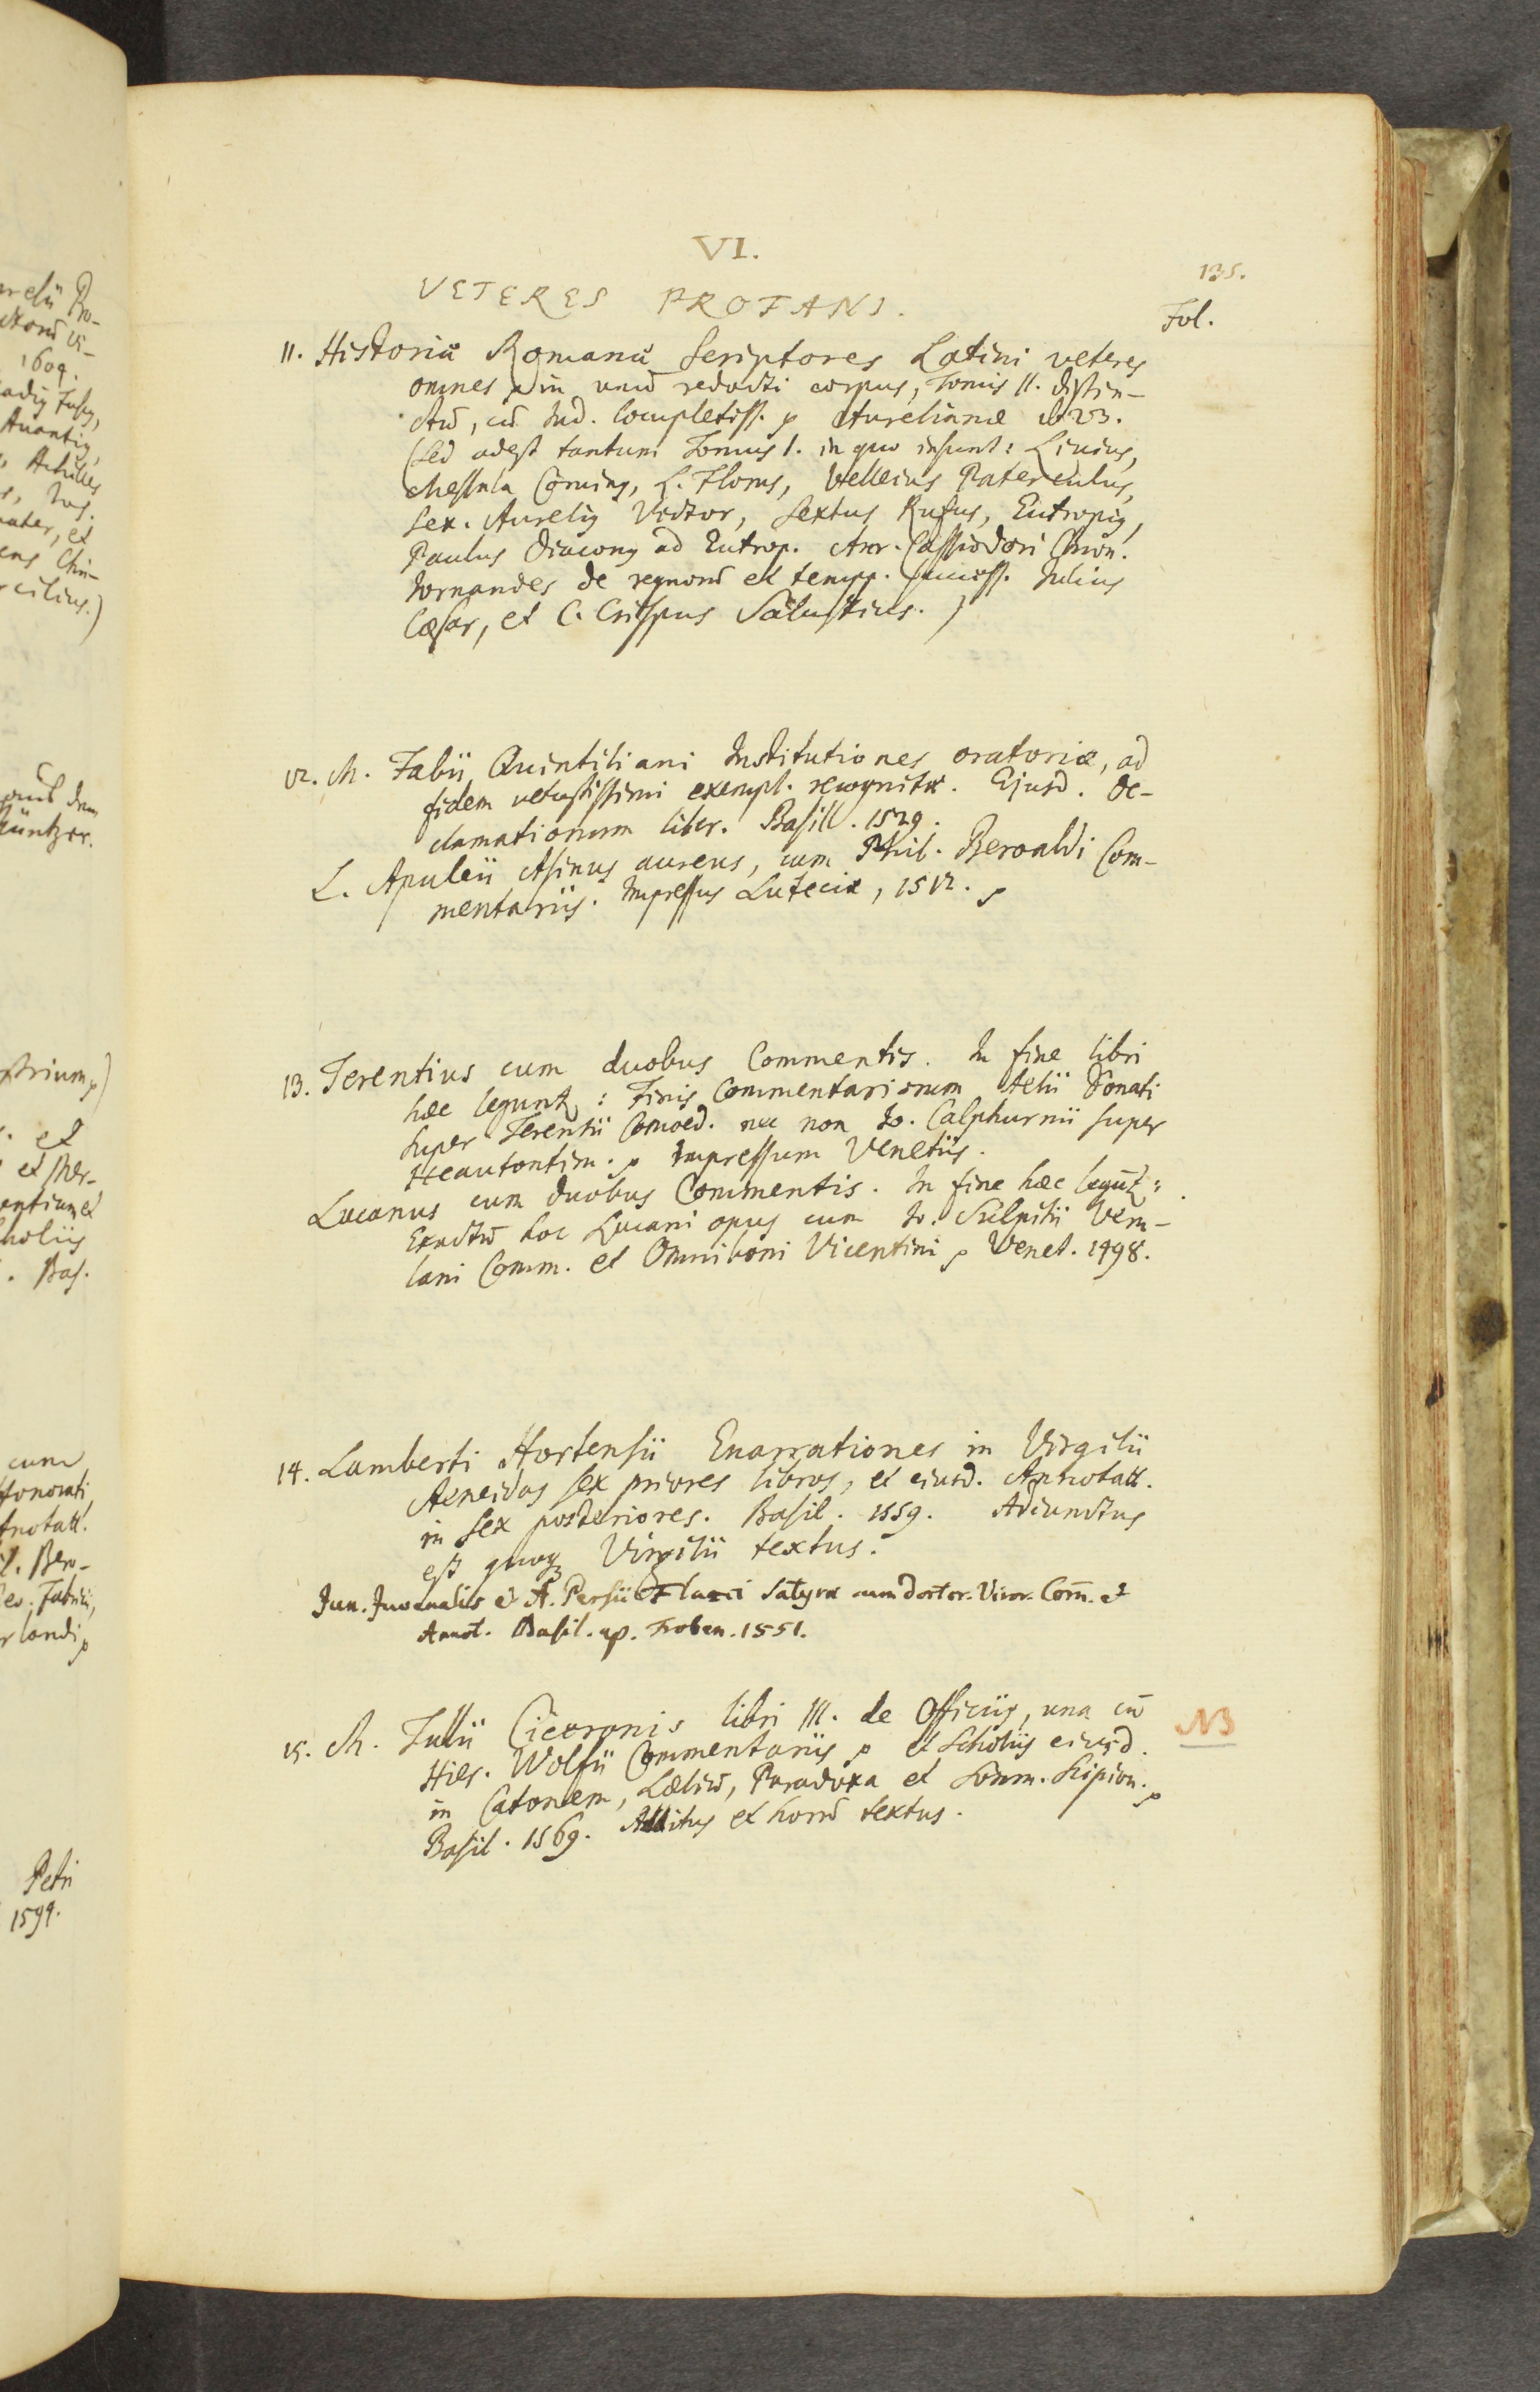 VI.
135.
VETERES PROFANI.
Fol.
11. Historiæ Romanæ Scriptores Latini veteres
omnes in unū redacti corpus, Tomis II. distin-
ctū, cū Ind. locupletiss. Aurelianæ
(Sed adest tantum Tomus I. in quo insunt: Livius,
Messala Corving, L. Florus, Velleius Paterculus,
Sex. Aurelig Victor, Sextus Rufus, Eutropig,
Paulus Diacong ad Eutrop. Aur. Cassiodori Chron.
Jornandes de regnorū et tempp. success. Julius
Cæsar, et C. Crispus Salustius.)
12. M. Fabii Quintiliani Institutiones oratoriæ, ad
fidem vetustissimi exempl. recognitæ. Ejusd. De-
clamationum liber. Basil. 1529.
L. Apuleii Asinus aureus, cum Phil. Beroaldi Com-
mentariis. Impressus Luteciæ, 1512.
13. Terentius cum duobus Commentis. In fine libri
hæc legunt: Finis Commentariorum Aelii Donati
super Terentii Comoed. nec non Io. Calphurnii super
Heautontim. Impressum Venetiis.
Lucanus cum duobus Commentis. In fine hæc legūt:
Exactū hoc Lucani opus cum Io. Sulpitii Veru-
lani Comm. et Omniboni Vicentini Venet. 1498.
14. Lamberti Hortensii Enarrationes in Virgilii
Aeneidos sex priores libros, et eiusd. Annotatt.
in sex posteriores. Basil. 1559. Adiunctus
est quoqz Virgilii textus.
Jun. Juvenalis & A. Persii Flacci Satyræ cum doctor. Viror. Com̄. et
Annot. Basil. ap. Froben. 1551.
15. M. Tullii Ciceronis libri III. de Officiis, una cū
NB
Hier. Wolfii Commentariis et Scholiis eiusd.
in Catonem, Læliū, Paradoxa et Somn. Scipion.
Basil. 1569. Additus et horū textus.
1609.
Achilles
cilius.)
üntzer.
et
holiis
Bas.
cum
Honorati
Annotatt.
Bero-
Fabricii,
Petri
1594.